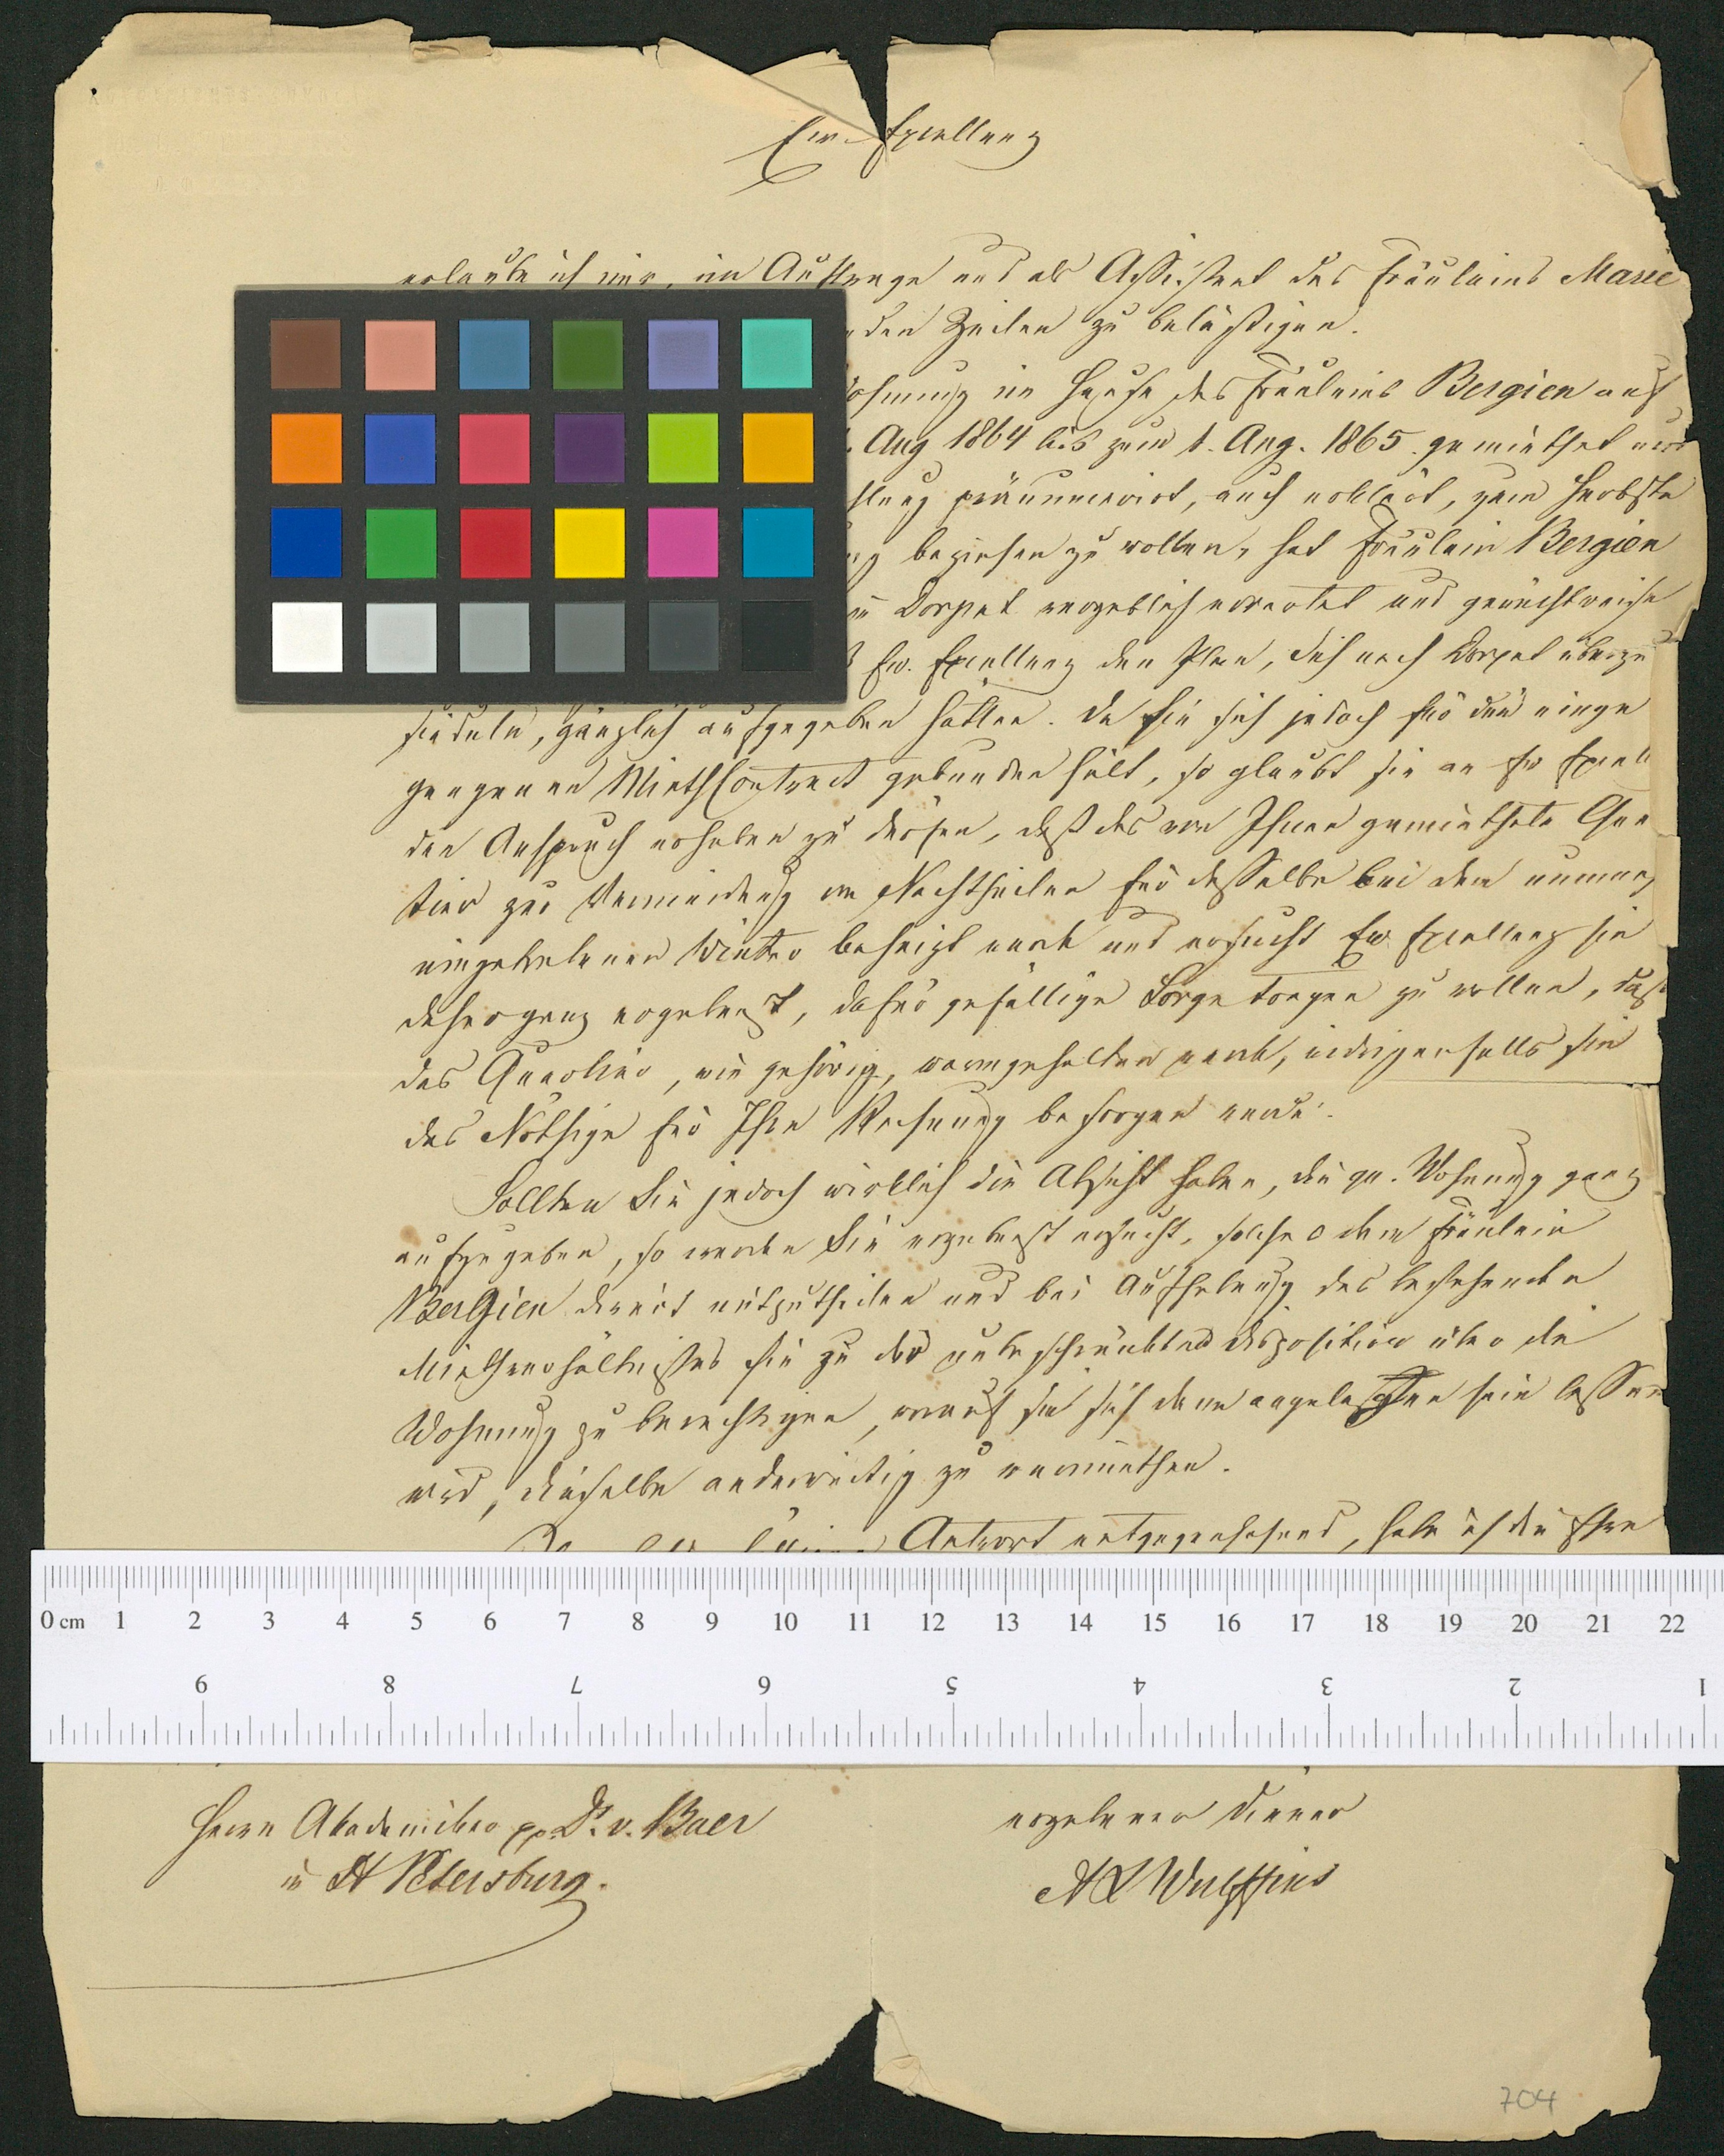 Ew. Excellenz
erlaube ich mir, im Auftrage und als Assistent des Fräuleins Marie
den Zeilen zu belästigen.
ohnung im Hause des Fräuleins Bergien auf
1. Aug 1864 bis zum 1. Aug. 1865 gemiethet und
hlung pränumerirt, auch erklärt, zum Herbste
ng beziehen zu wollen, hat Fräulein Bergien
in Dorpat vergeblich erwartet und gerüchtweise
Ew. Excellenz den Plan, sich nach Dorpat überzu
siedeln, gänzlich aufgegeben hätten. Da sie sich jedoch für den einge
gangenen MiethContract gebunden hält, so glaubt sie an Ew Excell
den Anspruch erheben zu dürfen, daß das von Ihnen gemiethete Quar
tier zur Vermeidung von Nachtheilen für dasselbe bei dem nunmehr
eingetretenen Winter beheizt werde und ersucht Ew. Excellenz sie
daher ganz ergebenst, dafür gefällige Sorge tragen zu wollen, daß
das Quartier, wie gehörig, warmgehalten werde, widrigenfalls sie
das Nöthige für Ihre Rechnung besorgen werde.
Sollten Sie jedoch wirklich die Absicht haben, die qu. Wohnung ganz
aufzugeben, so werden Sie ergebenst ersucht, solches dem Fräulein
Bergien direct mitzutheilen und bei Aufhebung des bestehenden
Miethverhältnisses sie zu der unbeschränkten Disposition über die
Wohnung zu berechtigen, worauf sie sich dann angelegen sein lassen
wird, dieselbe anderweitig zu vermiethen.
Antwort entgegensehend, habe ich die Ehre
Herrn Akademiker pp. Dr. v. Baer
in St Petersburg.
ergebener Diener
A L Wulffius
704
0 cm 1 2 3 4 5 6 7 8 9 10 11 12 13 14 15 16 17 18 19 20 21 22
9 8 7 6 5 4 3 2 1